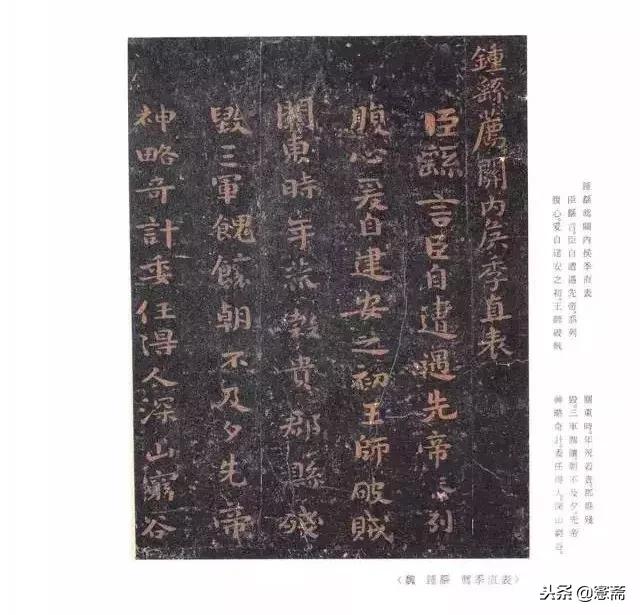 鍾繇薦關內侯季直表
臣繇言臣自遭遇先帝忝列
腹心爰自建安之初王師破賊
關東時年荒穀貴郡縣殘
毀三軍餽饟朝不及夕先帝
神略奇計委任得人深山窮谷
鍾繇薦關內侯季直表
臣繇言。臣自遭遇先帝。忝列
腹心。爰自建安之初。王師破賊
關東時。年荒穀貴。郡縣殘
毀。三軍餽饟。朝不及夕。先帝
神略奇計。委任得人。深山窮谷。
〈魏 鍾繇 薦季直表〉
头条@憲斋